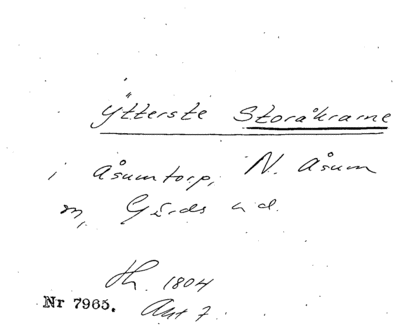 Ytterste Storåkrarne
i Åsumtorp, N. Åsum
m, Gärds hd.
Th. 1804
Nr 7965. Akt 7.